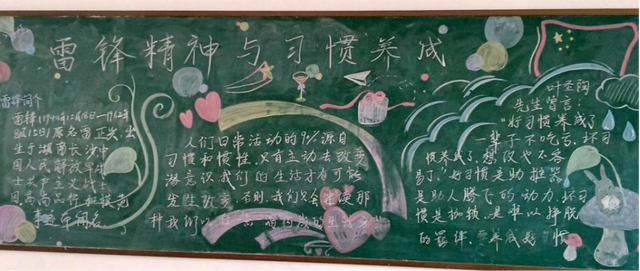 雷锋精神与习惯养成
雷锋简介
雷锋(1940年12月18日-1962年
8月15日)原名雷正兴,出
生于湖南长沙,中
国人民解放军战
士,共产主义战士
人们日常活动的9%源自
习惯和惯性,只有主动去改变
潜意识我们的生活才有可能
发生改变,否则,我们只会重复那
叶圣陶
先生曾言:
"好习惯养成了
一辈子不吃亏,坏习
惯养成了,想改也不容
易了。"好习惯是助推器
是助人腾飞的动力,坏习
惯是枷锁,是难以挣脱
的羁绊,要养成好习惯